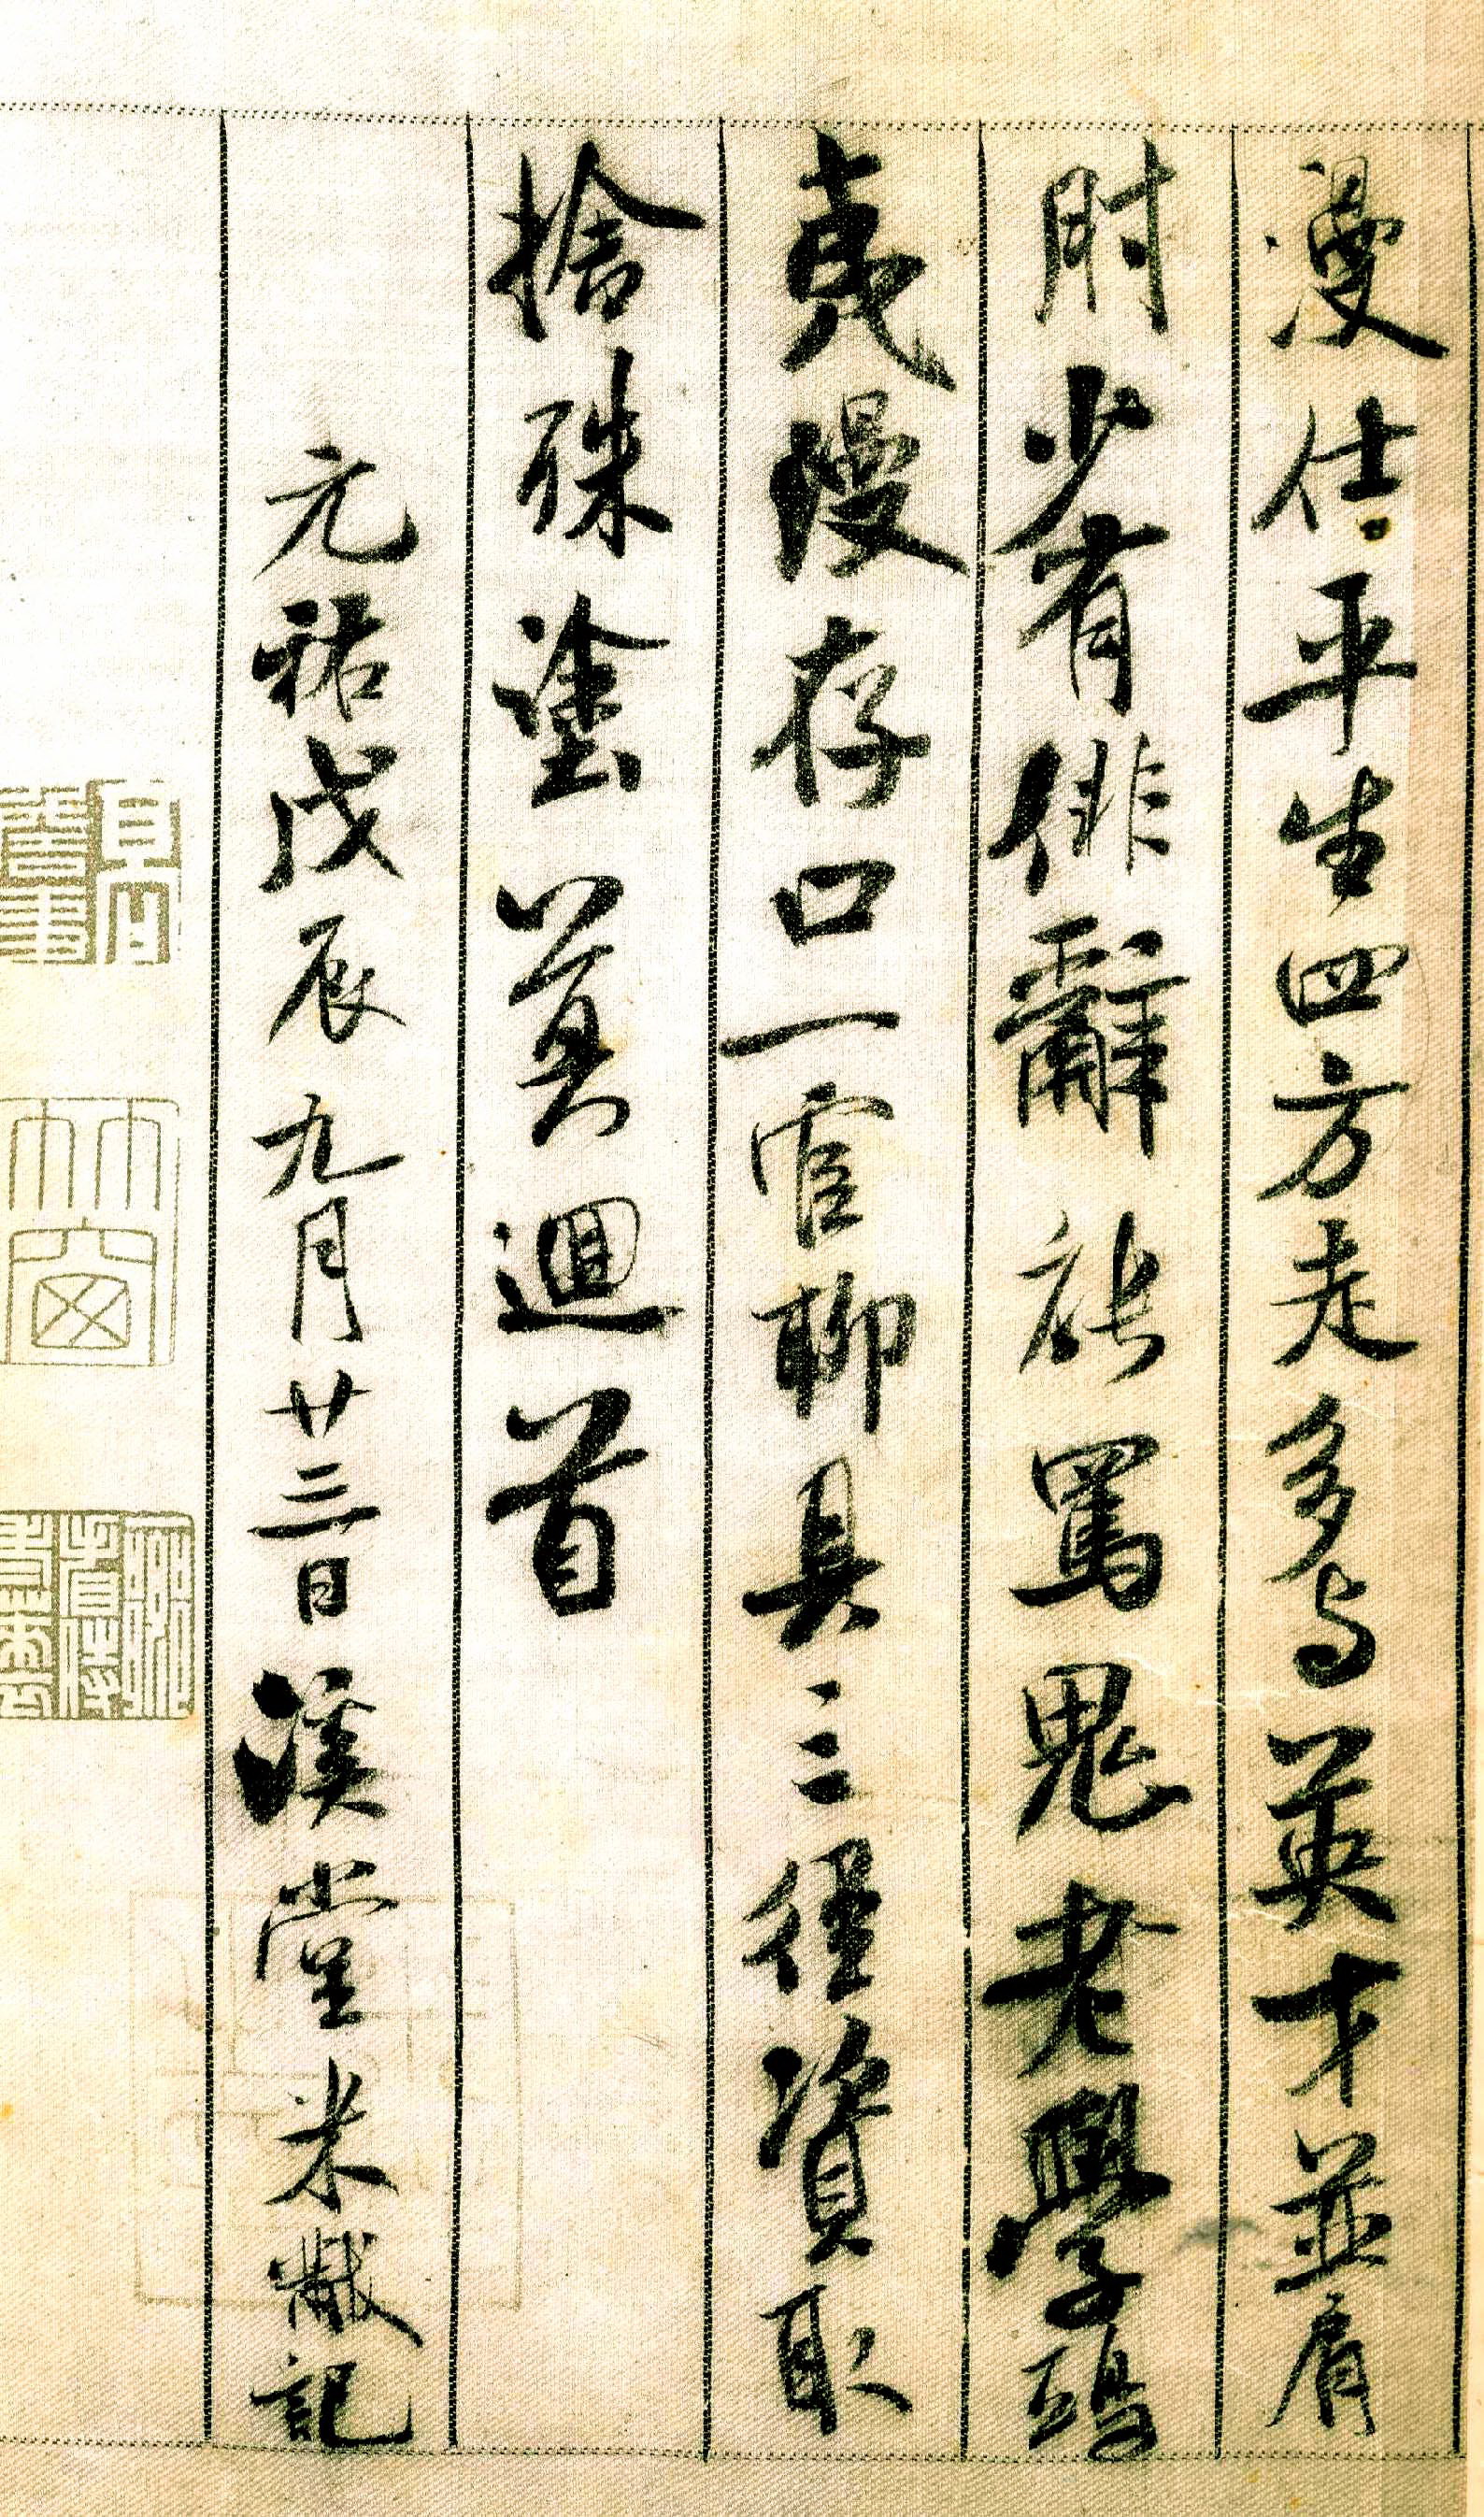 漫仕平生四方走多与英才並肩
肘少有俳辭能罵鬼老學鴟
夷漫存口一官聊具三徑資取
捨殊塗莫迴首
元祐戊辰九月廿三日溪堂米黻記
竹窗